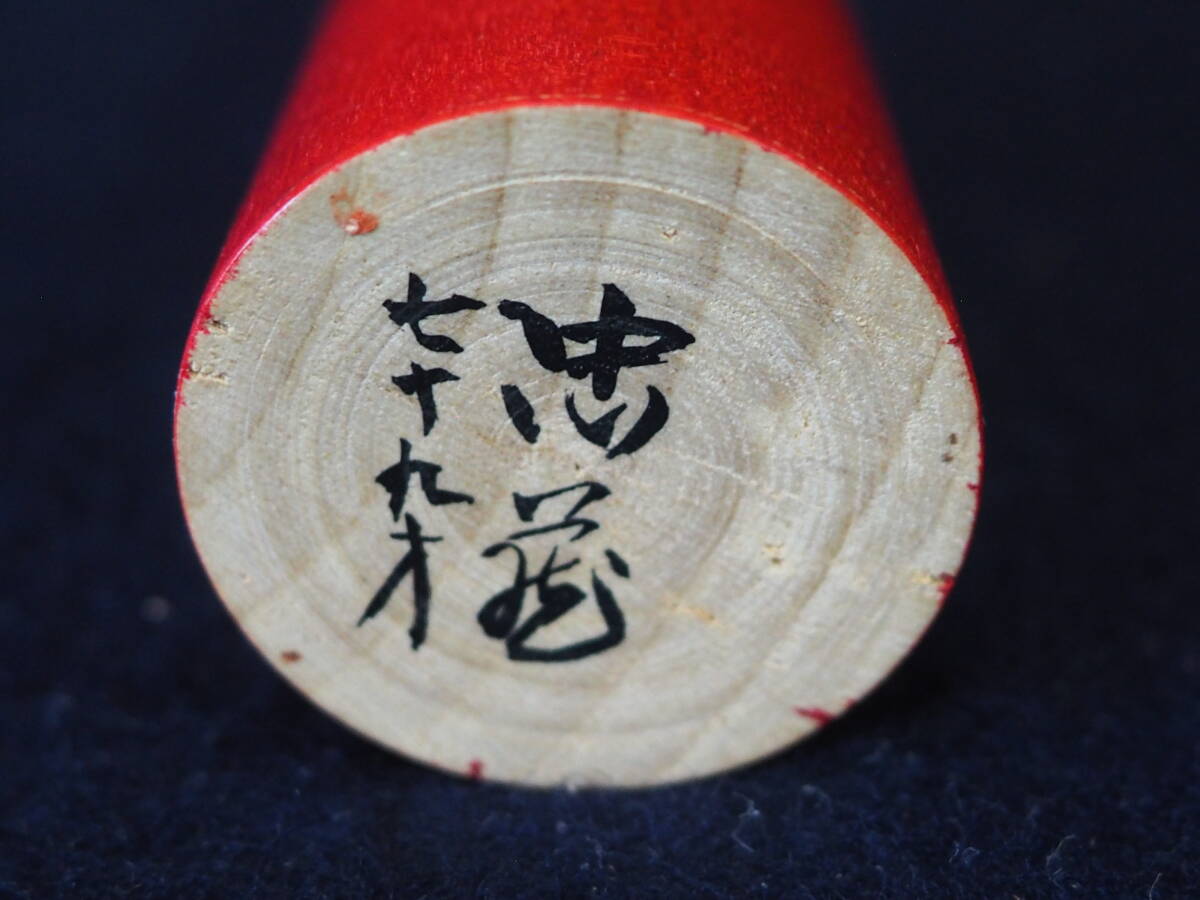 忠蔵
七十九才